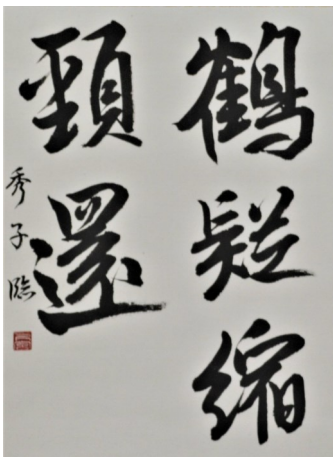 鶴疑縮
頸還
秀子臨